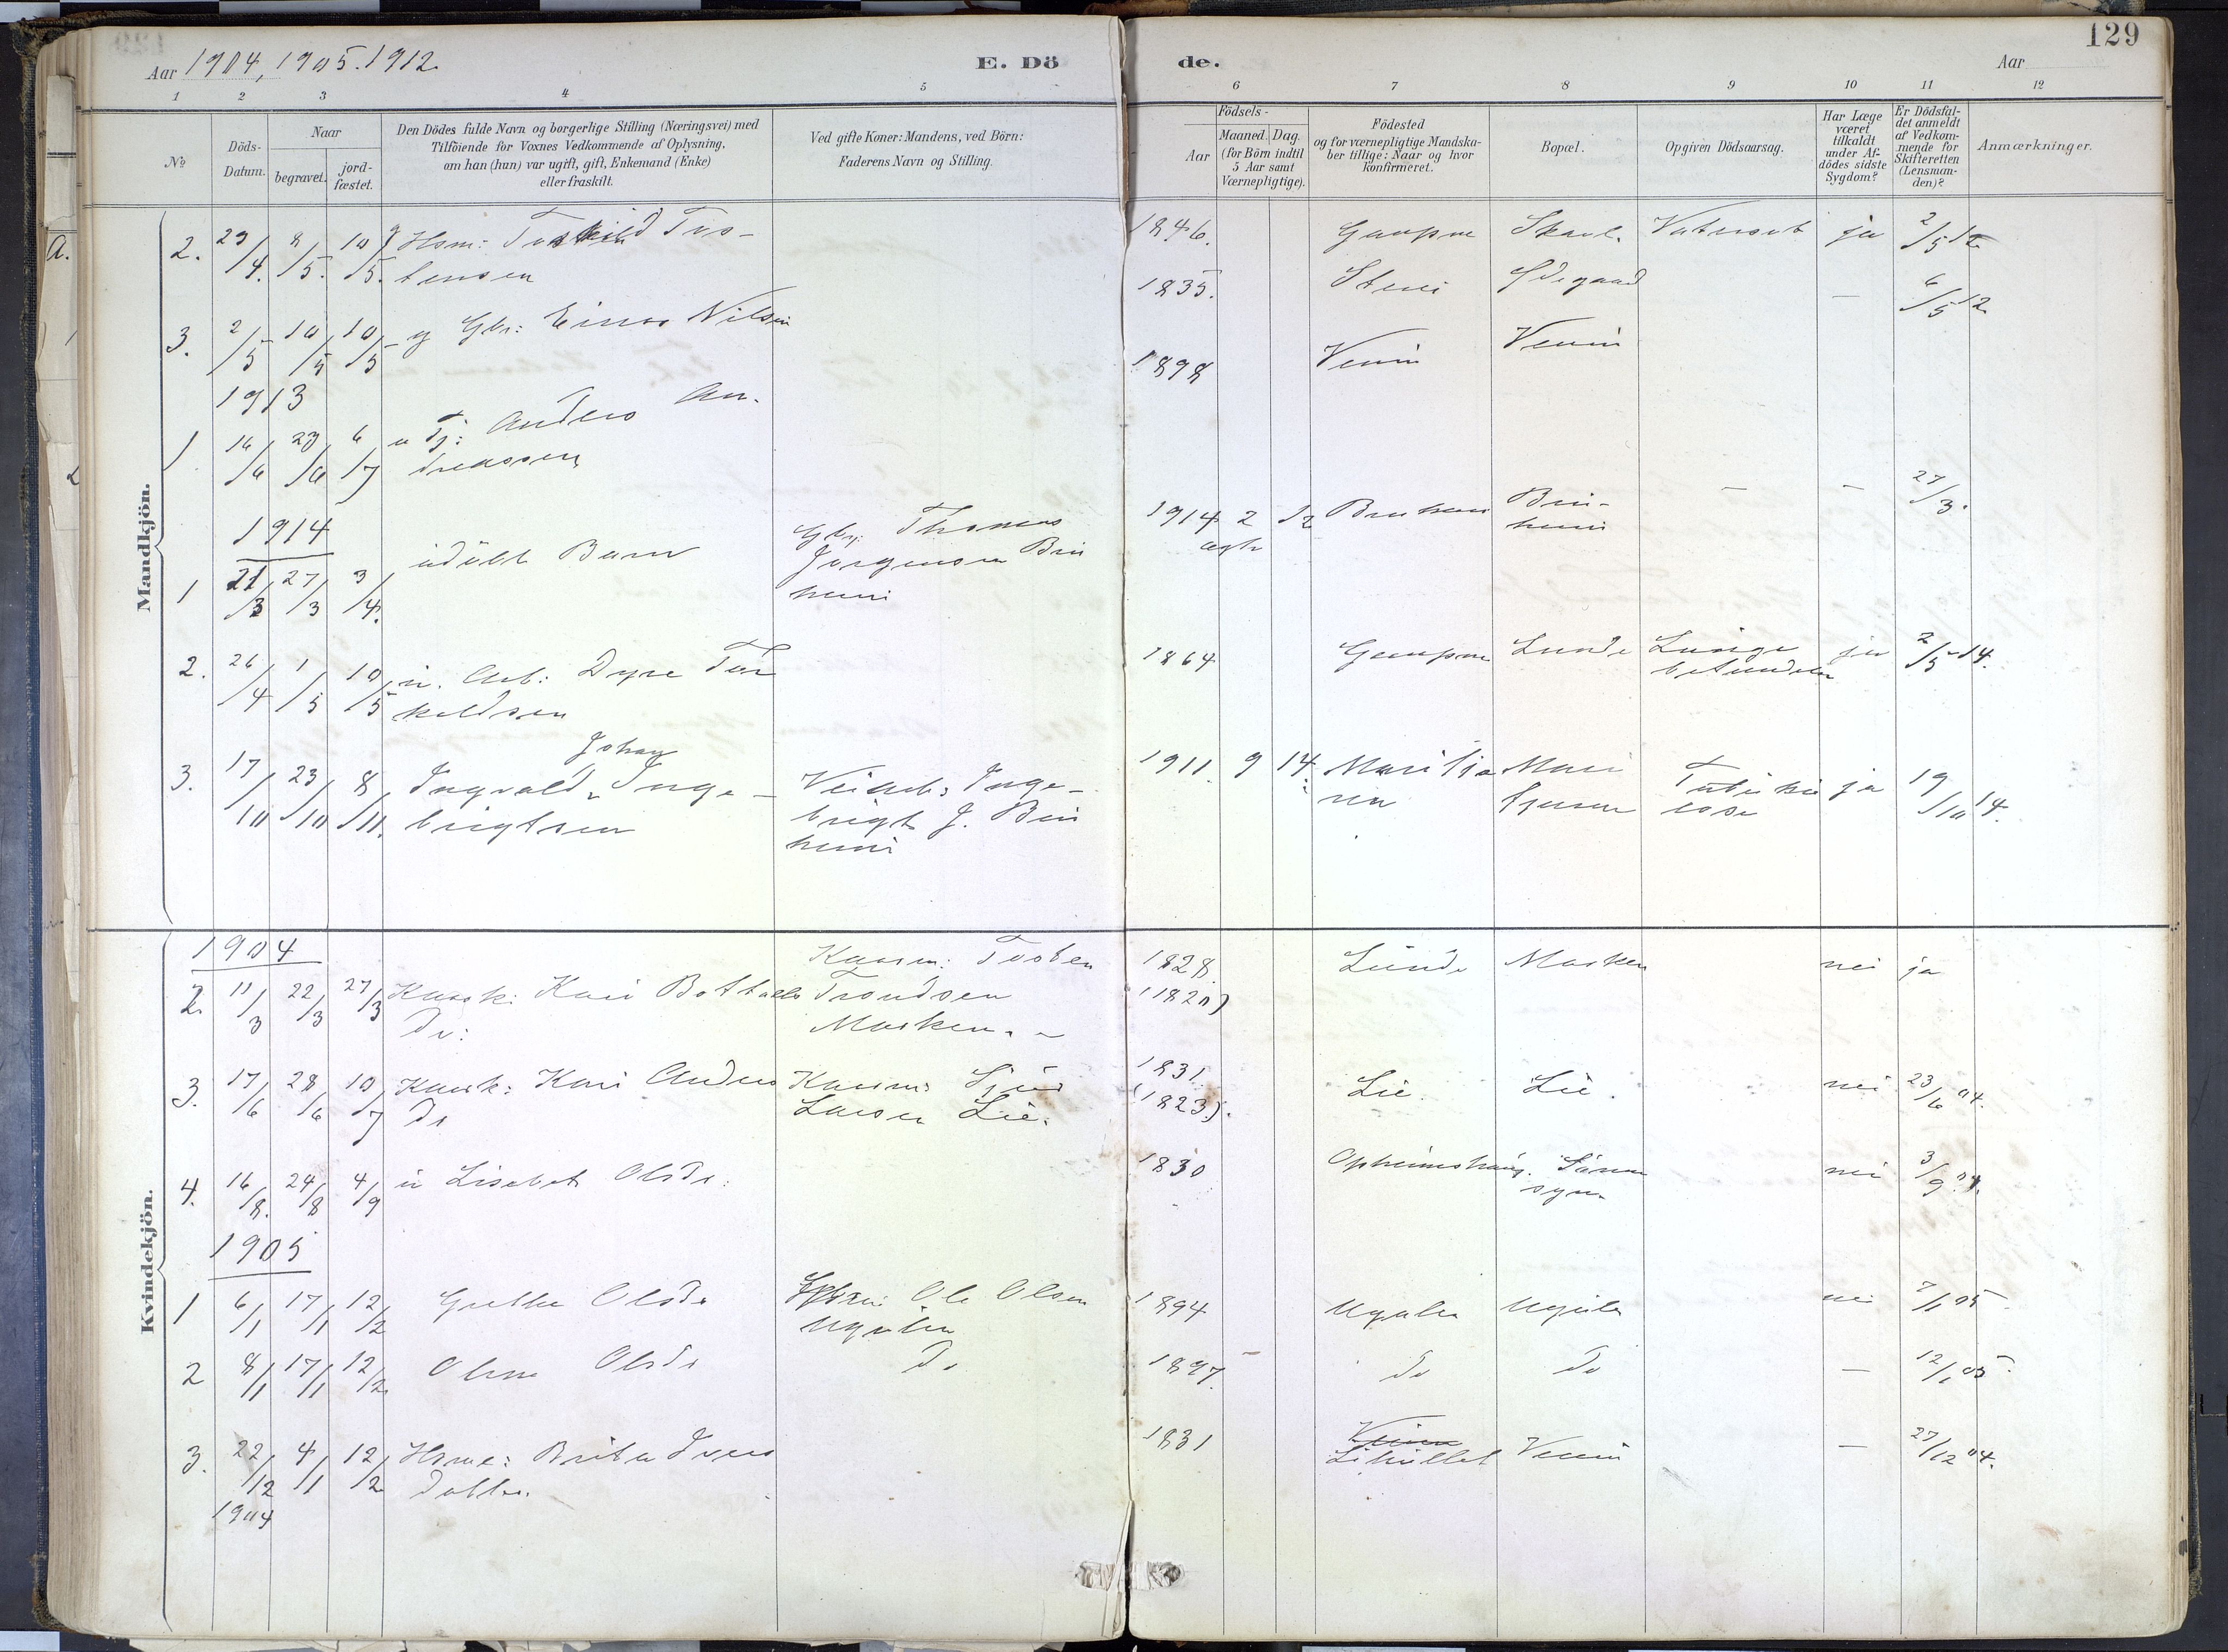 129
Aar 1904, 1905. 1912.
E. Dö
de.
Aar
1 2 3 4 5 6 7 8 9 10 11 12
No
Döds-Datum.
Naar
begravet.
jord-fæstet.
Den Dödes fulde Navn og borgerlige Stilling (Næringsvei) med
Tilföiende for Voxnes Vedkommende af Oplysning,
om han (hun) var ugift, gift, Enkemand (Enke)
eller fraskilt.
Ved gifte Koner: Mandens, ved Börn:
Faderens Navn og Stilling.
Födsels-
Aar
Maaned. Dag.
(for Börn indtil
5 Aar samt
Værnepligtige).
Födested
og for værnepligtige Mandska-
ber tillige: Naar og hvor
konfirmeret.
Bopæl.
Opgiven Dödsaarsag.
Har Læge
været
tilkaldt
under Af-
dödes sidste
Sygdom?
Er Dödsfal-
det anmeldt
af Vedkom-
mende for
Skifteretten
(Lensman-
den)?
Anmærkninger.
Mandkjön.
2. 29/4. 8/5. 10/5. g Hsm: Torkild Tos- 1846. Gaupne Skarl. ja 2/5 12
tensen
3. 2/5 10/5 10/5 g Gbr: Einar Nilsen 1835. Steni Ødegaard — 6/5 12
1913
1 16/6 23/6 6/7 u Tj: Anders An- 1898 Venin Venin
dreassen
1914
1 21/3 27/3 3/4. udöbt Barn Gbr: Thomas 1914 2 12 — — 27/3.
Jørgensen
2. 26/4 1/5 10/5 u. Arb: Dyre Tor 1864 Gaupne Lunde Lunge ja 2/5 14.
keldsen betændelse
Johan
3. 17/10 23/10 8/11. Ingvald Inge- Veiarb: Inge- 1911. 9 14. ja 19/10 14.
brigtsen brigt J.
Kvindekjön.
1904
2. 11/3 22/3 27/3 Kaark: Kari Bottolfs Kaarm: Tosten 1828 Lunde Marken nei ja
Dr: Trondsen (1820)
Marken.
3. 17/6 28/6 10/7 Kaark: Kari Anders Kaarm: Sjur 1831. Lie. Lie. nei 23/6 04.
Dr Larsen Lie. (1823).
4. 16/8. 24/8 4/9 u Lisabet Olsdr: 1830 Opheimshaug. nei 3/9 04.
1905
1 6/1 17/1 12/2 Grethe Olsdr Ole Olsen 1894 nei 7/1 05
2 8/1 17/1 12/2 Olsdr Do 1897. do do — 12/1 05.
3. 22/12 4/1 12/2 Hsme: Brita Ivers 1831 Venin — 27/12 04.
1904 datter.